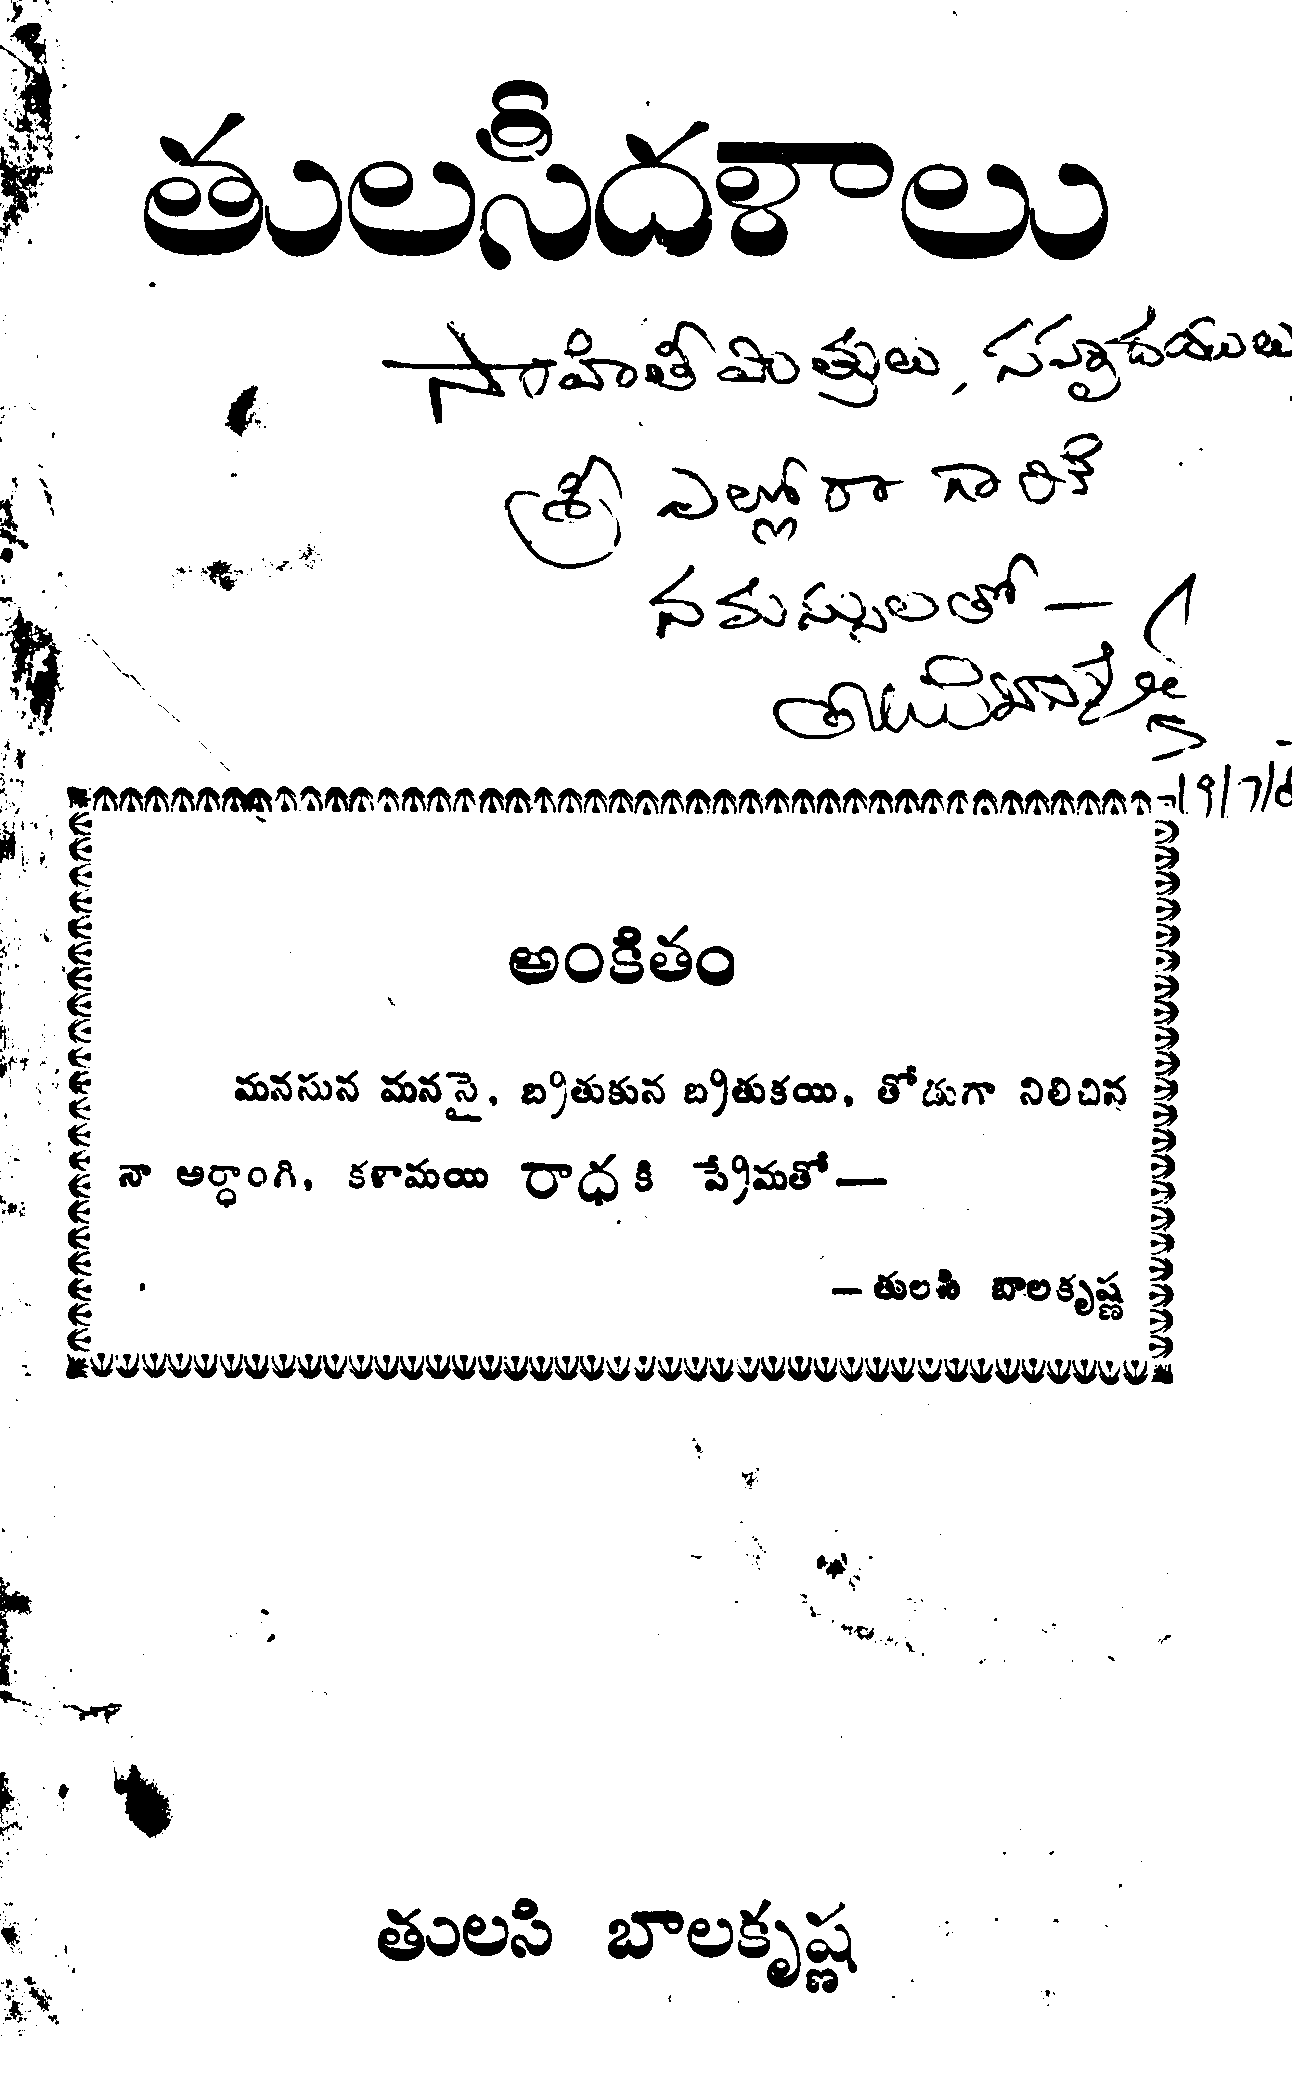 తులసీదళాలు
సాహితీమిత్రులు, సహృదయులు
శ్రీ ఎల్లోరా గారికి
నమస్సులతో —
19/7/
అంకితం
మనసున మనసై, బ్రతుకున బ్రతుకయి, తోడుగా నిలిచిన
నా అర్ధాంగి, కళామయి రాధ కి ప్రేమతో—
— తులసి బాలకృష్ణ
తులసి బాలకృష్ణ